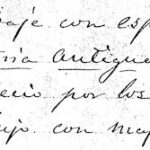 bajé con esp
ria antigua
ecio por los
dujo con may